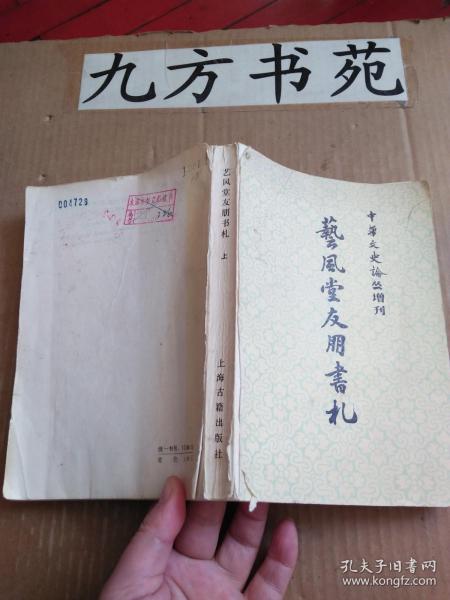 九方书苑
004729
艺风堂友朋书札 上
上海古籍出版社
中华文史論丛增刊
藝風堂友朋書札
孔夫子旧书网
www.kongfz.com